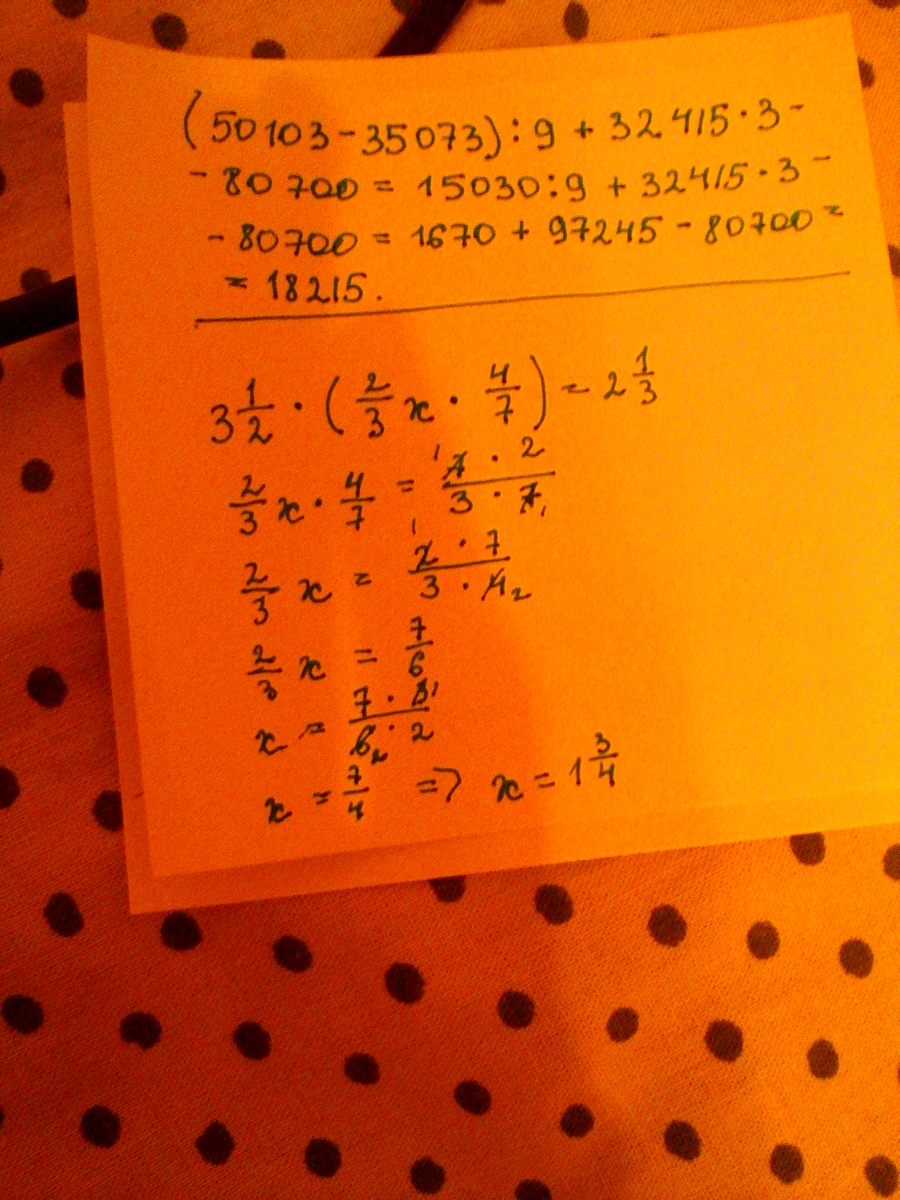 (50103-35073):9 + 32415·3-
-80700 = 15030:9 + 32415·3-
-80700 = 1670 + 97245 - 80700 =
= 18215.
3 1/2 · (2/3 x · 4/7) = 2 1/3
2/3 x · 4/7 = 1 7 · 2 / 3 · 7 1
2/3 x = 1 2 · 7 / 3 · 4 2
2/3 x = 7/6
x = 7 · 3 1 / 6 2 · 2
x = 7/4 => x = 1 3/4